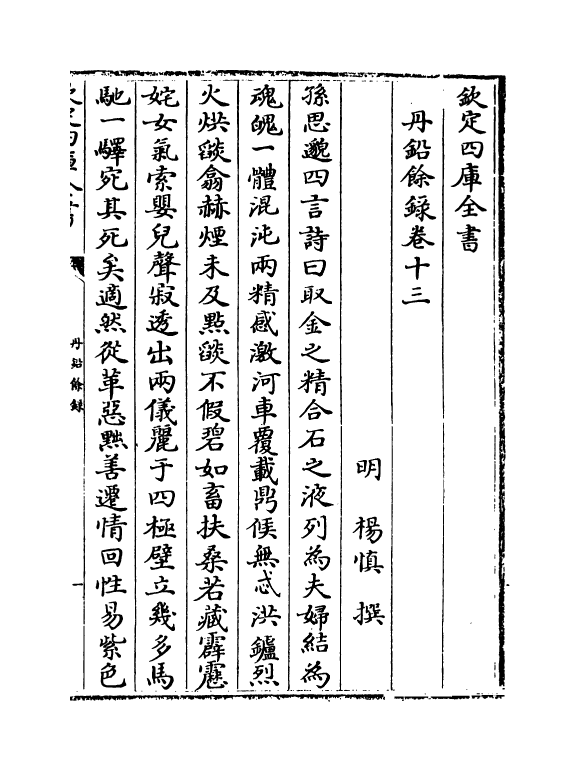 欽定四庫全書
丹鉛餘録卷十三
明 楊慎 撰
孫思邈四言詩曰取金之精合石之液列為夫婦結為
魂魄一體混沌兩精感激河車覆載鼎候無忒洪鑪烈
火烘焰翕赫煙未及黔焰不假碧如畜扶桑若藏霹靂
姹女氣索嬰兒聲寂透出兩儀麗于四極壁立幾多馬
馳一驛宛其死矣適然從革惡黜善遷情回性易紫色
丹鉛餘録
一